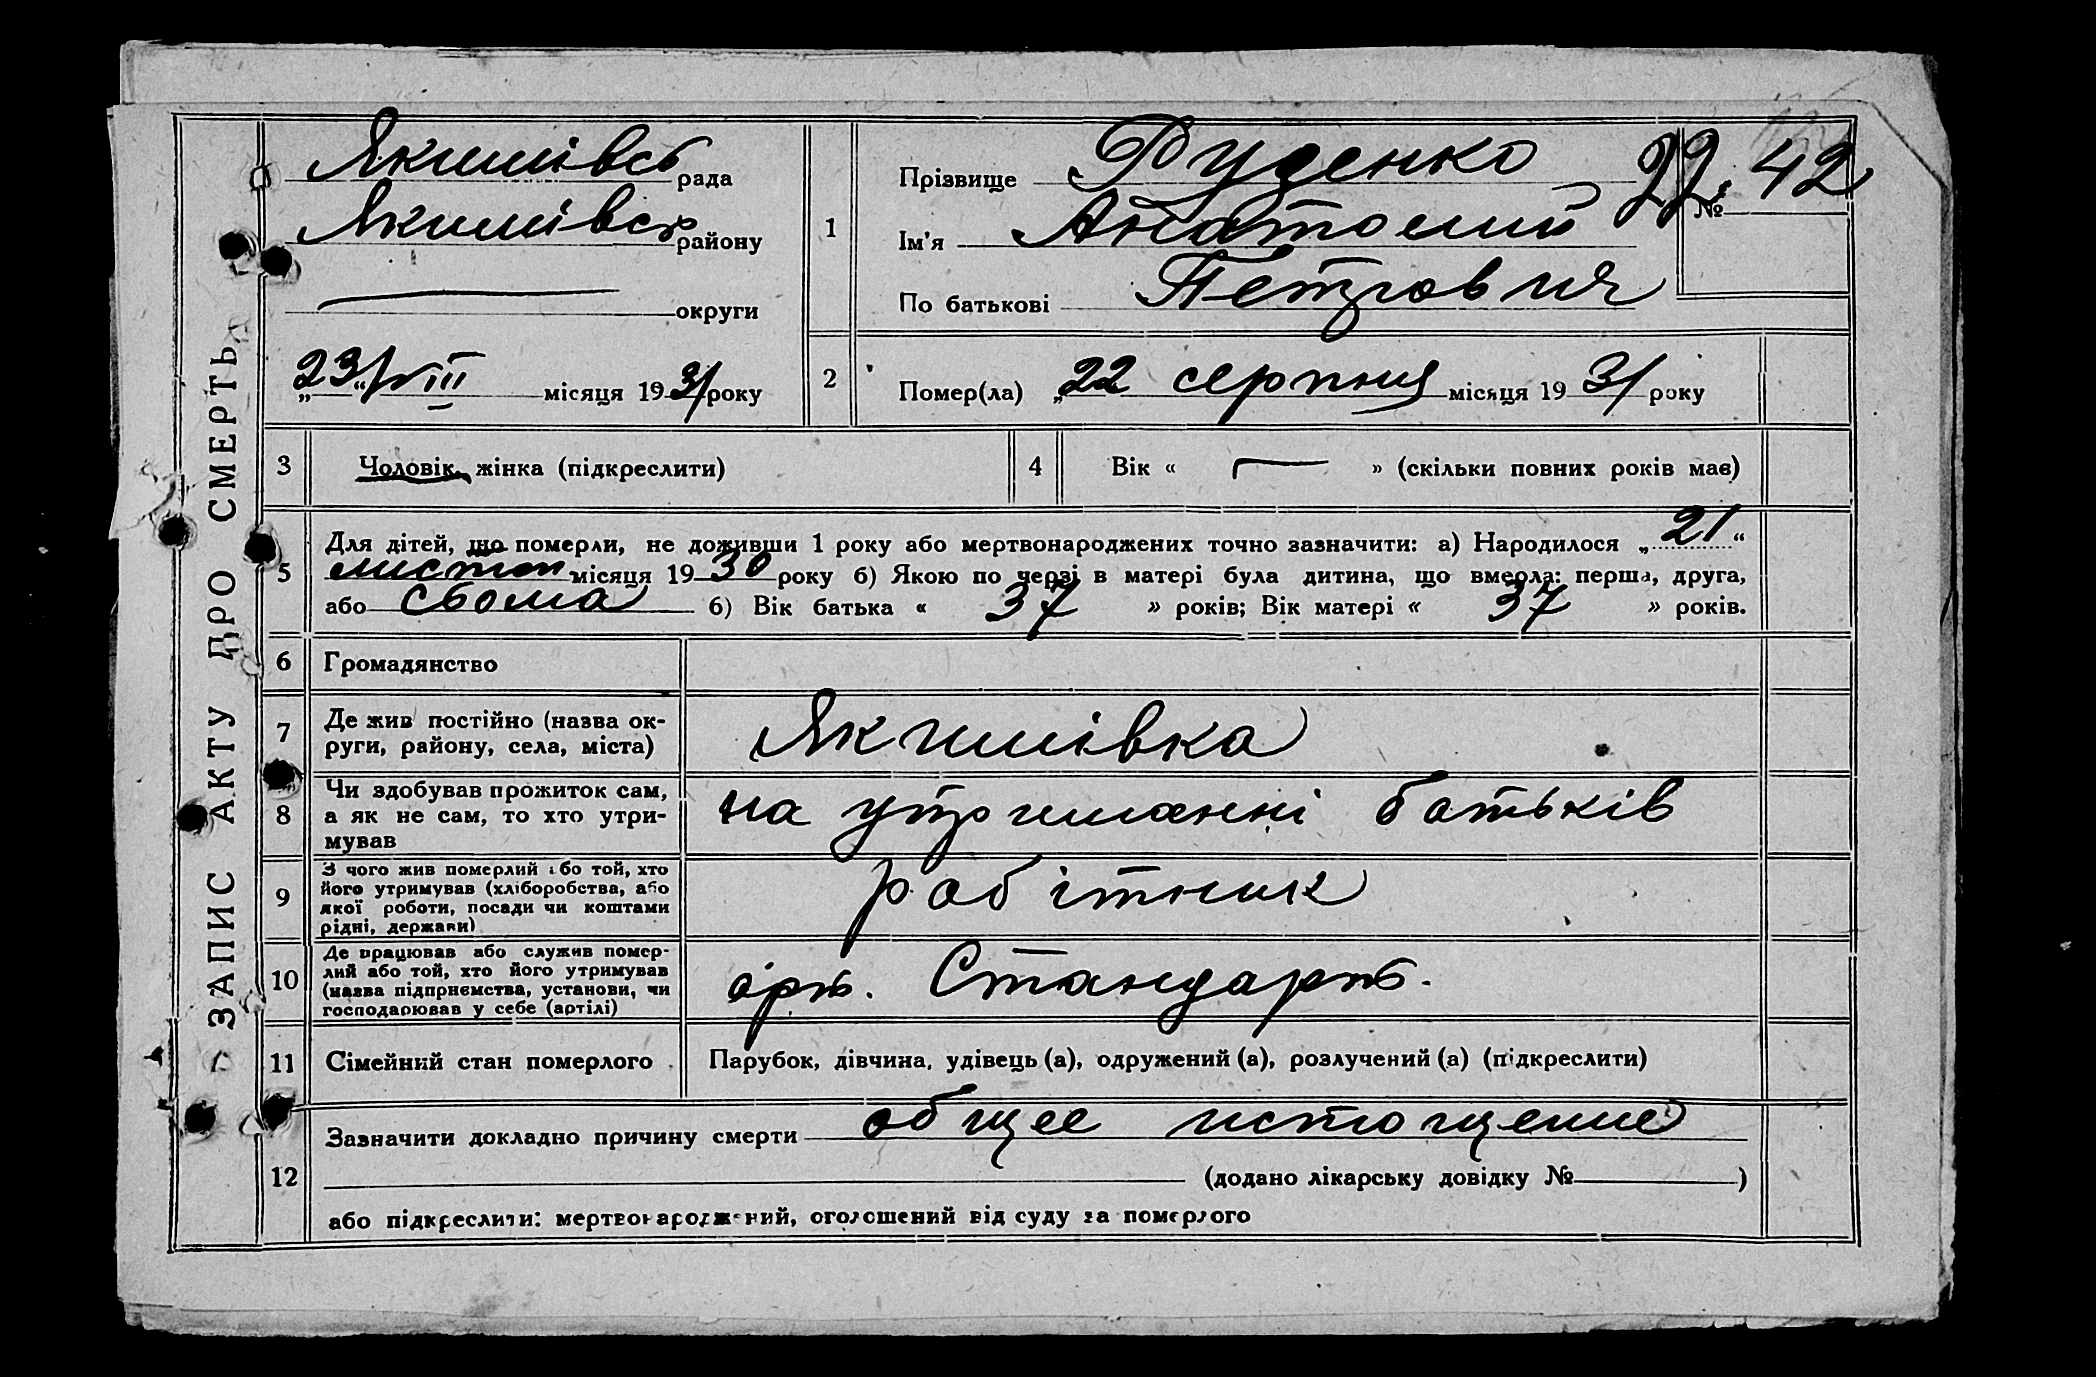 ЗАПИС АКТУ ПРО СМЕРТЬ
Якимівсь рада
Якимівськ району
округи
„23“ VIII місяця 1931 року
1
Прізвище Руденко
Ім'я Анатолий
По батькові Петрович
№ 42
2
Помер(ла) „22 серпня місяця 1931 року
3 Чоловік, жінка (підкреслити)
4 Вік « — » (скільки повних років має)
5
Для дітей, що померли, не доживши 1 року або мертвонароджених точно зазначити: а) Народилося „21“
листоп місяця 1930 року б) Якою по черзі в матері була дитина, що вмерла: перша, друга,
або сьома б) Вік батька « 37 » років; Вік матері « 37 » років.
6 Громадянство
7 Де жив постійно (назва ок-
руги, району, села, міста)
Якимівка
8 Чи здобував прожиток сам,
а як не сам, то хто утри-
мував
на утриманні батьків
9 З чого жив померлий або той, хто
його утримував (хліборобства, або
якої роботи, посади чи коштами
рідні, держави)
робітник
10 Де працював або служив помер-
лий або той, хто його утримував
(назва підприємства, установи, чи
господарював у себе (артілі)
арт. Стандарт.
11 Сімейний стан померлого
Парубок, дівчина, удівець (а), одружений (а), розлучений (а) (підкреслити)
12
Зазначити докладно причину смерти общее истощение
(додано лікарську довідку № )
або підкреслити: мертвонароджений, оголошений від суду за померлого